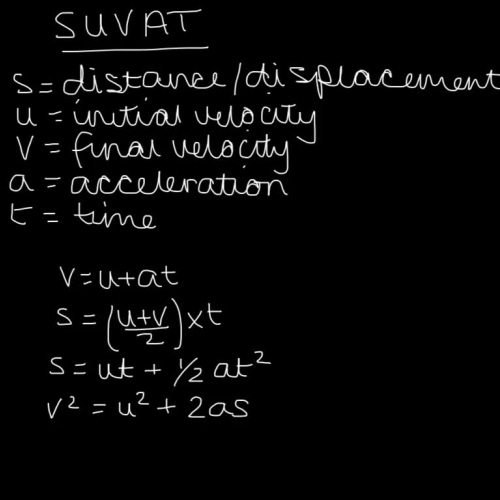 SUVAT
s = distance/displacement
u = initial velocity
v = final velocity
a = acceleration
t = time
v = u + at
s = (u+v/2) x t
s = ut + 1/2 at²
v² = u² + 2as